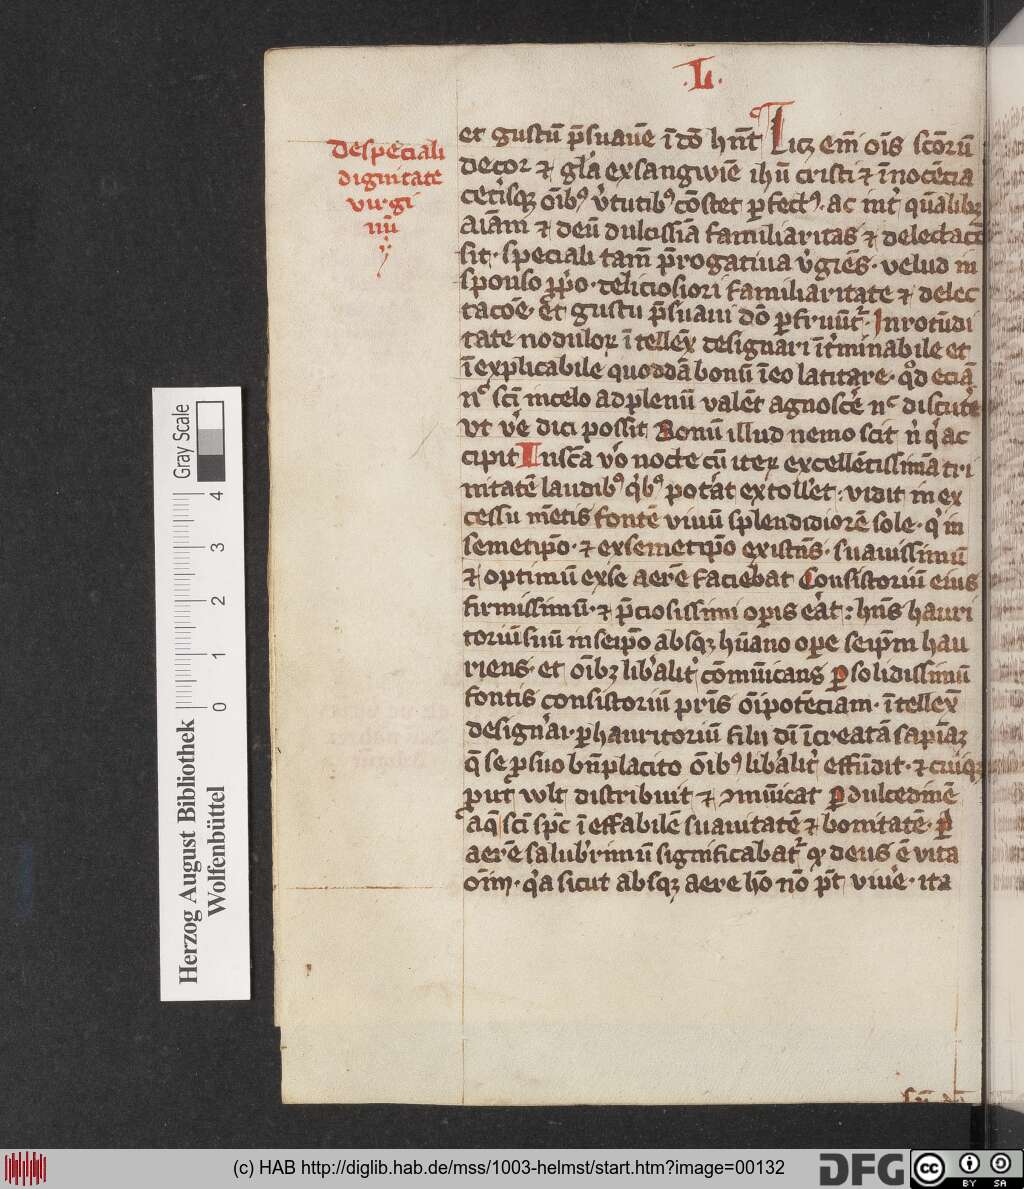 .L.
De speciali
dignitate
virgi
nũ
et gustũ p̃suauẽ ĩ dõ hñt Licꝫ em̃ oĩs sc̃orũ
decor ⁊ gl̃a ex sangwiẽ ihũ cristi ⁊ ĩnocẽcia
cet̾isqꝫ oĩbꝰ v̾tutibꝰ cõstet ꝑfectꝰ. ac int̾ qũalibꝫ
aiãm ⁊ deũ dulcissiã familiaritas ⁊ delectacõ
sit. speciali tam̃ p̃rogatiua v̾giẽs. velud in
sponso ꝓp̾o. deliciosiori familiaritate ⁊ delec
tacõe. et gustu p̃suaui dõ ꝑfruũt᷑. In rotũdi
tate nodulorꝫ ĩtellex̃ designari ĩt̾minabile et
ĩexplicabile quoddã bonũ ĩ eo latitare. qd̾ eciã
nᶜ sc̃i in celo ad plenũ valẽt agnosc̾e nᶜ discut̾e
vt v̾e dici possit Donũ illud nemo scit n̾ q̾ ac
cipit Iusc̃a v̾o nocte cũ iterꝫ excellẽtissimã tri
nitatẽ laudibꝰ q̾bꝰ pot̾at extoll̾et. vidit in ex
cessu mẽtis fontẽ viuũ splendidiorẽ sole. q̾ in
semetip̃o. ⁊ ex semetip̃o existñs. suauissimũ
⁊ optimũ ex se aerẽ faciebat Consistoriũ eius
firmissimũ. ⁊ p̃ciosissimi oꝑis e̾at: hñs hauri
toriũ suũ in seip̃o absqꝫ hũano oꝑe seip̃m hau
riens. et oĩbꝫ lib̾alit̾ cõmũicans ꝑ solidissimũ
fontis consistoriũ pr̃is oĩpotẽciam. ĩtellex̃
design̾ai. ꝑ hauritoriũ filii dĩ ĩcreatã sapiãꝫ
q̃ se ꝑ suo bñplacito oĩbꝰ lib̾alit̾ effũdit. ⁊ cuiqꝫ
ꝓut̾ wlt distribuit ⁊ ꝯmũicat ꝑ dulcedinẽ
aq̃ sc̃i sp̃c ĩeffabilẽ suauitatẽ ⁊ bonitatẽ. ꝑ
aerẽ salub̾rimũ significabat᷑ qꝫ deus ẽ vita
oĩm. q̾a sicut absqꝫ aere hõ nõ p̃t viu̾e. ita
Herzog August Bibliothek
Wolfenbüttel
Gray Scale
0 1 2 3 4
(c) HAB http://diglib.hab.de/mss/1003-helmst/start.htm?image=00132
DFG
cc BY SA